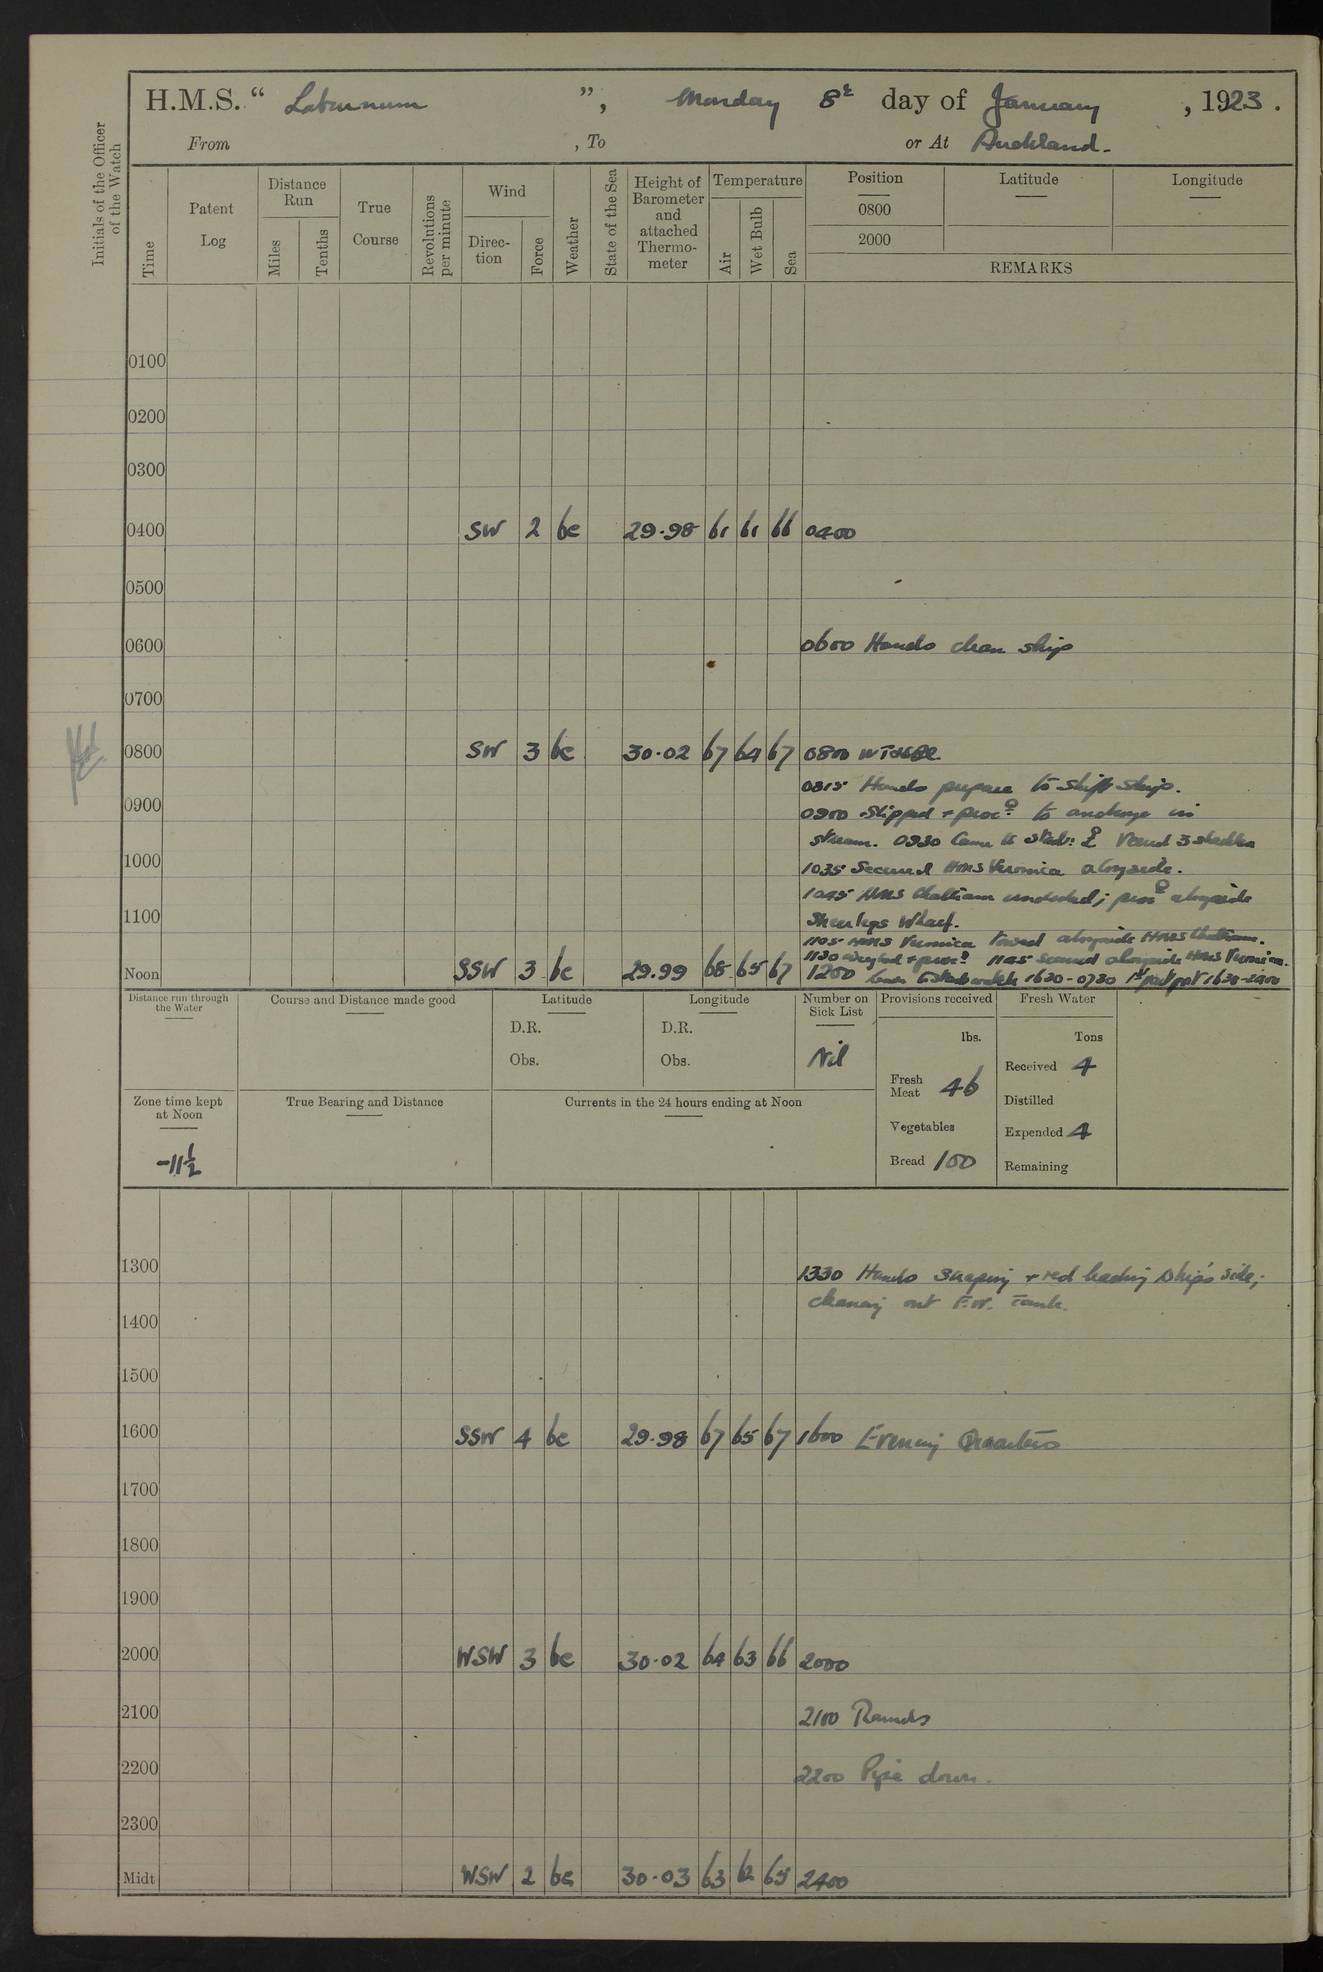 H.M.S. “ Laburnum ”, Monday 8th day of January, 1923.
From , To or At Auckland.
Initials of the Officer of the Watch
Time
Patent Log
Distance Run
Miles
Tenths
True Course
Revolutions per minute
Wind
Direc-tion
Force
Weather
State of the Sea
Height of Barometer and attached Thermo-meter
Temperature
Air
Wet Bulb
Sea
Position
0800
2000
Latitude
Longitude
REMARKS
0100
0200
0300
0400 SW 2 bc 29.98 61 61 66 0400
0500
0600 0600 Hands clean ship
0700
0800 SW 3 bc 30.02 67 64 67 0800
0815 Hands prepare to shift ship.
0900 0900 Slipped + procd to anchorage in
stream. 0930 Came to Stbd: Veered 3 shackles
1000 1035 Secured HMS Veronica alongside.
1045 HMS Chatham undocked; procd alongside
1100 Sheerlegs Wharf.
1105 HMS Veronica towed alongside HMS Chatham.
1130 Weighed + procd 1145 Secured alongside HMS Veronica.
Noon SSW 3 bc 29.99 68 65 67 1200 Leave to Stbd watch 1630-0730 1st part port 1630-2200
Distance run through the Water
Course and Distance made good
Latitude
D.R.
Obs.
Longitude
D.R.
Obs.
Number on Sick List
Nil
Provisions received
lbs.
Fresh Meat 46
Vegetables
Bread 100
Fresh Water
Tons
Received 4
Distilled
Expended 4
Remaining
Zone time kept at Noon
-11½
True Bearing and Distance
Currents in the 24 hours ending at Noon
1300 1330 Hands scraping + red leading ship's side;
cleaning out F.W. Tank.
1400
1500
1600 SSW 4 bc 29.98 67 65 67 1600 Evening Quarters
1700
1800
1900
2000 WSW 3 bc 30.02 64 63 66 2000
2100 2100 Rounds
2200 2200 Pipe down.
2300
Midt WSW 2 bc 30.03 63 62 65 2400